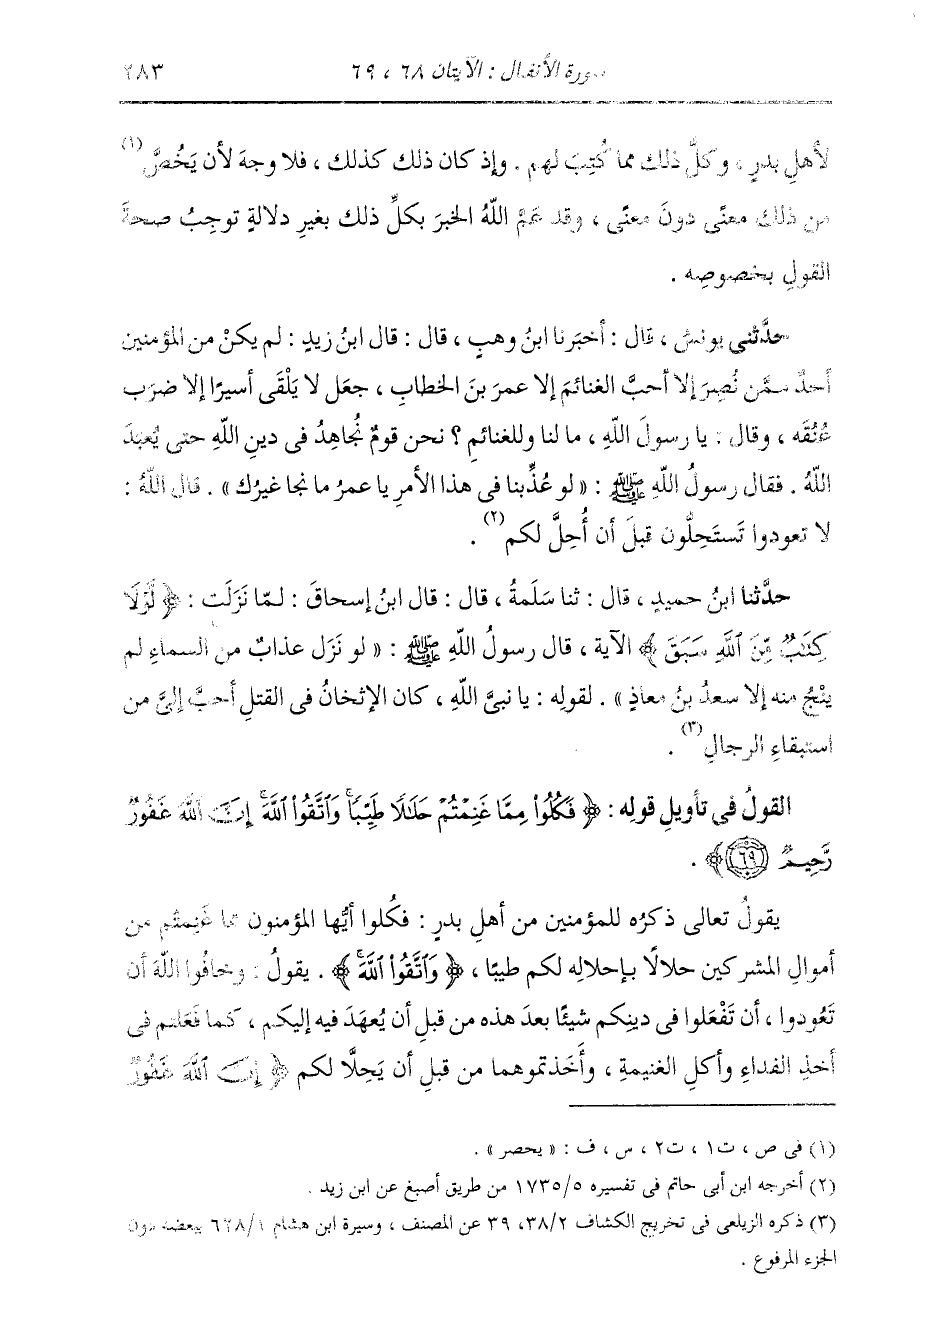 سورة الأنفال : الآيتان ٦٨ ، ٦٩ ٢٨٣
لأهلِ بدرٍ ، وكلُّ ذلك مما كُتِبَ لهم . وإذ كان ذلك كذلك ، فلا وجهَ لأن يَخُصَّ(١)
من ذلك معنًى دونَ معنًى ، وقد عَمَّ اللَّهُ الخبرَ بكلِّ ذلك بغيرِ دلالةٍ توجِبُ صحةَ
القولِ بخصوصِه .
حدَّثنى يونسُ ، قال : أخبَرنا ابنُ وهبٍ ، قال : قال ابنُ زيدٍ : لم يكنْ من المؤمنين
أحدٌ ممَّن نُصِرَ إلا أحبَّ الغنائمَ إلا عمرَ بنَ الخطابِ ، جعَل لا يَلْقَى أسيرًا إلا ضرَب
عُنُقَه ، وقال : يا رسولَ اللَّهِ ، ما لنا وللغنائمِ ؟ نحن قومٌ نُجاهِدُ فى دينِ اللَّهِ حتى يُعبَدَ
اللَّهُ . فقال رسولُ اللَّهِ ﷺ : « لو عُذِّبنا فى هذا الأمرِ يا عمرُ ما نجا غيرُك » . قال اللَّهُ :
لا تعودوا تَستَحِلُّون قبلَ أن أُحِلَّ لكم(٢) .
حدَّثنا ابنُ حميدٍ ، قال : ثنا سَلَمةُ ، قال : قال ابنُ إسحاقَ : لمّا نَزَلَت : ﴿ لَّوْلَا
كِتَٰبٌ مِّنَ ٱللَّهِ سَبَقَ ﴾ الآية ، قال رسولُ اللَّهِ ﷺ : « لو نَزَل عذابٌ من السماءِ لم
ينْجُ منه إلا سعدُ بنُ معاذٍ » . لقولِه : يا نبىَّ اللَّهِ ، كان الإثخانُ فى القتلِ أحبَّ إلىَّ من
استبقاءِ الرجالِ(٣) .
القولُ فى تأويلِ قولِه : ﴿ فَكُلُوا۟ مِمَّا غَنِمْتُمْ حَلَٰلًا طَيِّبًا ۚ وَٱتَّقُوا۟ ٱللَّهَ ۚ إِنَّ ٱللَّهَ غَفُورٌ
رَّحِيمٌ ﴿٦٩﴾ ﴾ .
يقولُ تعالى ذكرُه للمؤمنين من أهلِ بدرٍ : فكُلوا أيُّها المؤمنون مما غَنِمتُم من
أموالِ المشركين حلالًا بإحلالِه لكم طيبًا ، ﴿ وَٱتَّقُوا۟ ٱللَّهَ ۚ ﴾ . يقولُ : وخافُوا اللَّهَ أن
تَعُودوا ، أن تَفْعَلوا فى دينِكم شيئًا بعدَ هذه من قبلِ أن يُعهَدَ فيه إليكم ، كما فَعَلتم فى
أخذِ الفداءِ وأكلِ الغنيمةِ ، وأَخَذتموهما من قبلِ أن يَحِلَّا لكم ﴿ إِنَّ ٱللَّهَ غَفُورٌ
(١) فى ص ، ت١ ، ت٢ ، س ، ف : « يحصر » .
(٢) أخرجه ابن أبى حاتم فى تفسيره ١٧٣٥/٥ من طريق أصبغ عن ابن زيد .
(٣) ذكره الزيلعى فى تخريج الكشاف ٣٨/٢، ٣٩ عن المصنف ، وسيرة ابن هشام ٦٢٨/١ ببعضه دون
الجزء المرفوع .